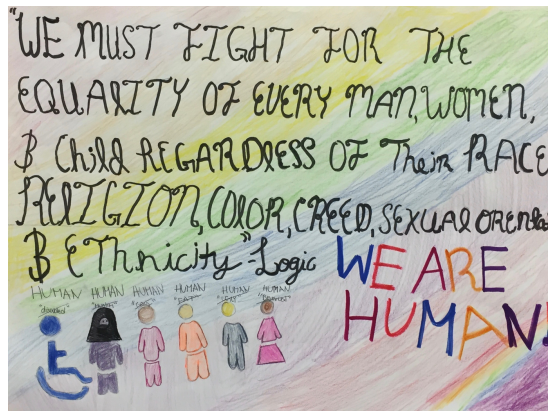 "WE MUST FIGHT FOR THE
EQUALITY OF EVERY MAN, WOMEN,
& Child REGARDLESS OF Their RACE
RELIGION, COLOR, CREED, SEXUAL
& EThnicity" -Logic
WE ARE
HUMAN!
HUMAN HUMAN HUMAN HUMAN HUMAN HUMAN
"disabled" "FAT"